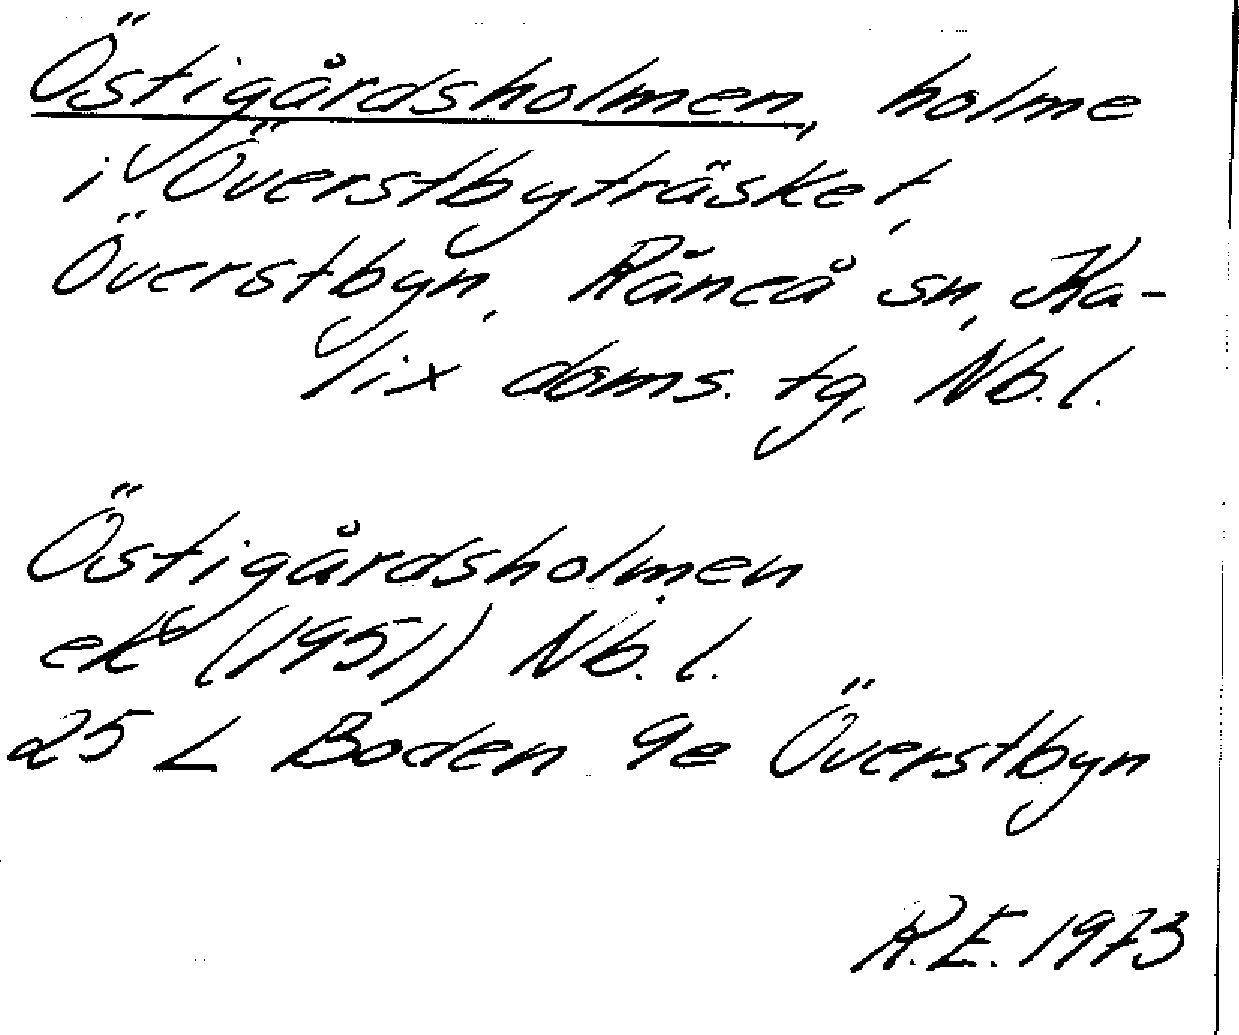 Östigårdsholmen, holme
i Överstbyträsket,
Överstbyn, Råneå sn, Ka-
lix doms. tg, Nb. l.
Östigårdsholmen
ek (1951) Nb. l.
25 L Boden 9e Överstbyn
R.E. 1973